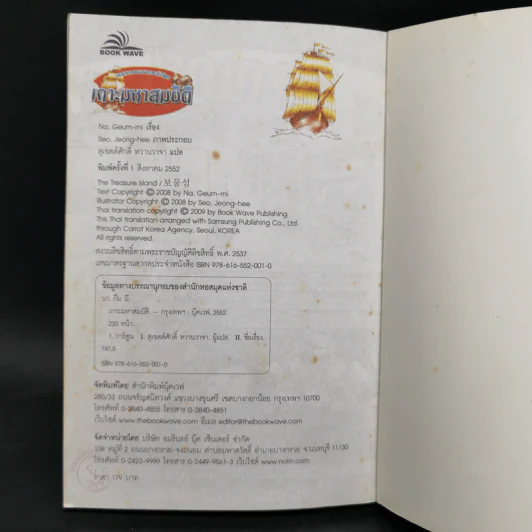 BOOK WAVE
เกาะมหาสมบัติ
Na, Geum-mi เรื่อง
Seo, Jeong-hee ภาพประกอบ
สุเขตต์ศักดิ์ หวานวาจา แปล
พิมพ์ครั้งที่ 1 สิงหาคม 2552
The Treasure Island / 보물섬
Text Copyright © 2008 by Na, Geum-mi
Illustrator Copyright © 2008 by Seo, Jeong-hee
Thai translation copyright © 2009 by Book Wave Publishing
This Thai translation arranged with Samsung Publishing Co., Ltd.
through Carrot Korea Agency, Seoul, KOREA
All rights reserved.
สงวนลิขสิทธิ์ตามพระราชบัญญัติลิขสิทธิ์ พ.ศ. 2537
เลขมาตรฐานสากลประจำหนังสือ ISBN 978-616-552-001-0
ข้อมูลทางบรรณานุกรมของสำนักหอสมุดแห่งชาติ
นา, กึม มี.
เกาะมหาสมบัติ. -- กรุงเทพฯ : บุ๊คเวฟ, 2552.
220 หน้า.
1. การ์ตูน. I. สุเขตต์ศักดิ์ หวานวาจา, ผู้แปล. II. ชื่อเรื่อง.
741.5
ISBN 978-616-552-001-0
จัดพิมพ์โดย สำนักพิมพ์บุ๊คเวฟ
285/33 ถนนจรัญสนิทวงศ์ แขวงบางขุนศรี เขตบางกอกน้อย กรุงเทพฯ 10700
โทรศัพท์ 0-2840-4855 โทรสาร 0-2840-4851
เว็บไซต์ www.thebookwave.com อีเมล editor@thebookwave.com
จัดจำหน่ายโดย บริษัท อมรินทร์ บุ๊ค เซ็นเตอร์ จำกัด
108 หมู่ที่ 2 ถนนบางกรวย-จงถนอม ตำบลมหาสวัสดิ์ อำเภอบางกรวย จ.นนทบุรี 11130
โทรศัพท์ 0-2423-9999 โทรสาร 0-2449-9561-3 เว็บไซต์ www.naiin.com
ราคา 179 บาท